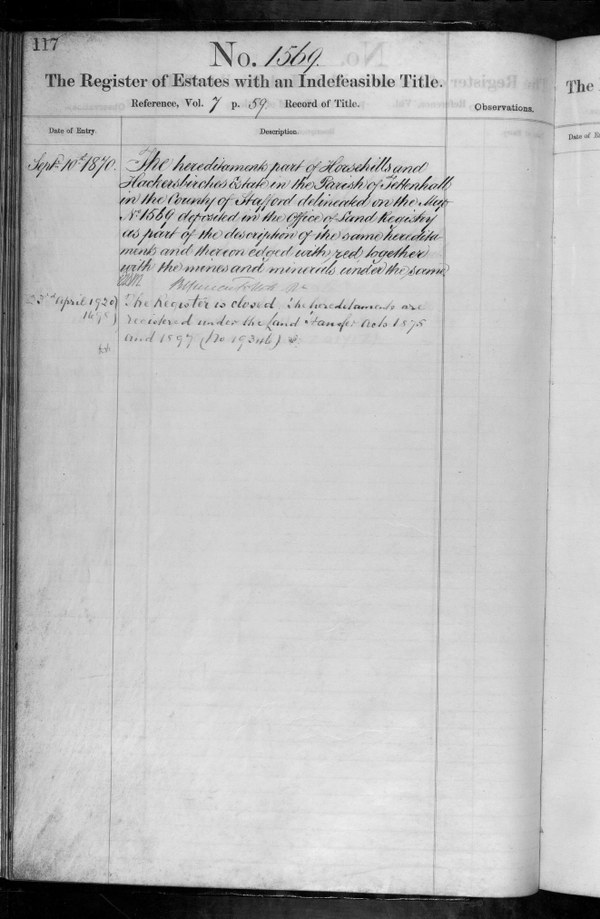 117
No. 1569
The Register of Estates with an Indefeasible Title.
Reference, Vol. 7 p. 59 Record of Title.
Observations.
Date of Entry.
Description.
Septr. 10th 1870.
The hereditaments part of Horsehills and
Hackersbirches Estate in the Parish of Tettenhall
in the County of Stafford delineated on the Map
No. 1569 deposited in the Office of Land Registry
as part of the description of the same heredita-
ments and thereon edged with red together
with the mines and minerals under the same
23rd April 1920
The Register is closed. The hereditaments are
registered under the Land Transfer Acts 1875
and 1897 (No 19346)
The
Date of E